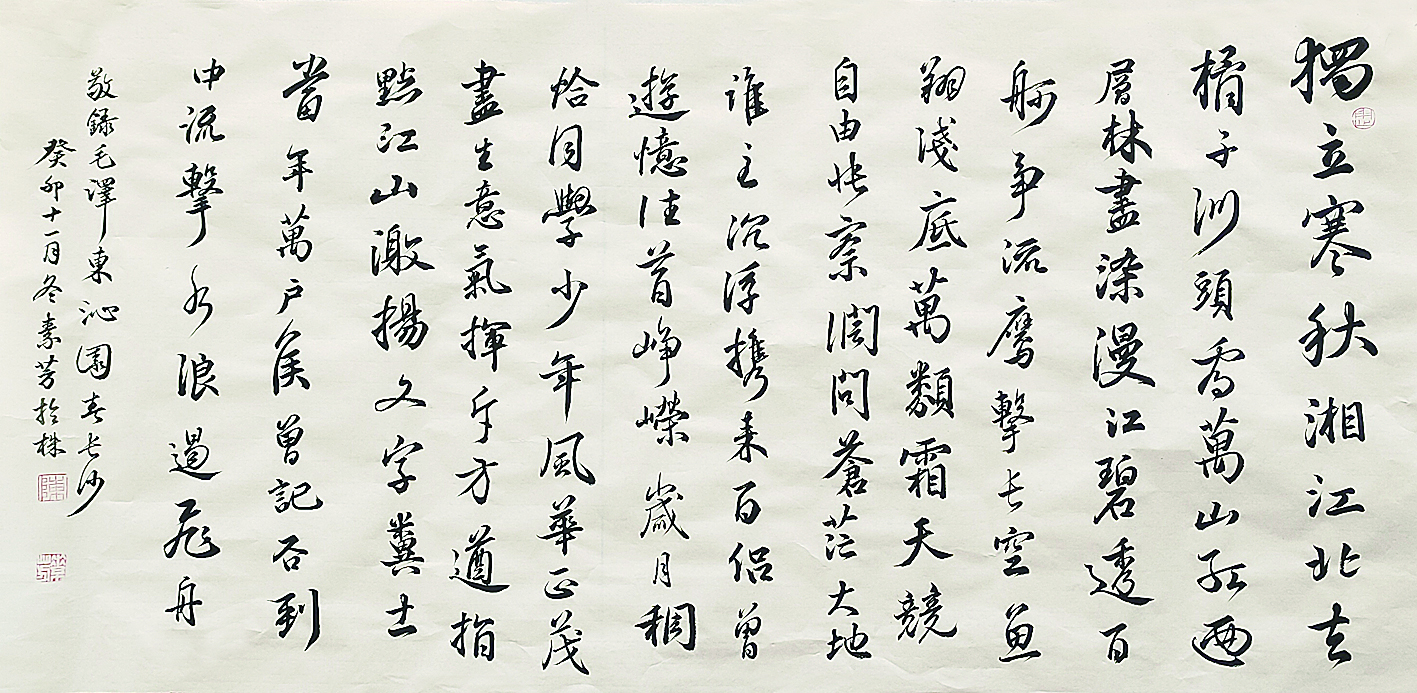 獨立寒秋湘江北去
橘子洲頭看萬山紅遍
層林盡染漫江碧透百
舸争流鹰擊長空魚
翔淺底萬類霜天競
自由悵寥闊問蒼茫大地
誰主沉浮攜来百侣曾
遊憶往昔崢嶸歲月稠
恰同學少年風華正茂
書生意氣揮斥方遒指
點江山激揚文字糞土
當年萬户侯曾記否到
中流擊水浪遏飛舟
敬録毛澤東沁園春長沙
癸卯十一月冬素芳於株